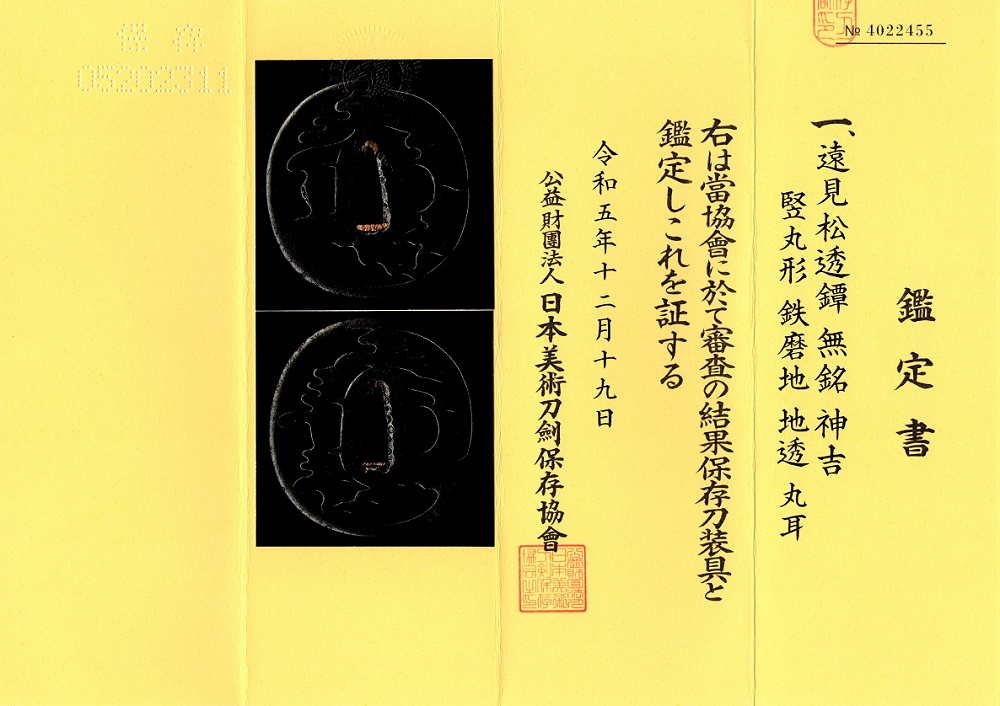 № 4022455
鑑定書
一、遠見松透鐔 無銘 神吉
竪丸形 鉄磨地 地透 丸耳
右は當協會に於て審査の結果保存刀装具と
鑑定しこれを証する
令和五年十二月十九日
公益財團法人 日本美術刀劍保存協會
保存
05202311